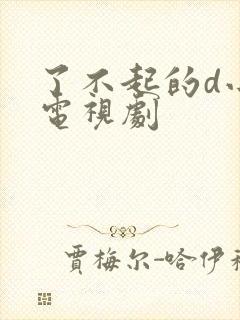 了不起的d
電視劇
賈梅尔-哈伊